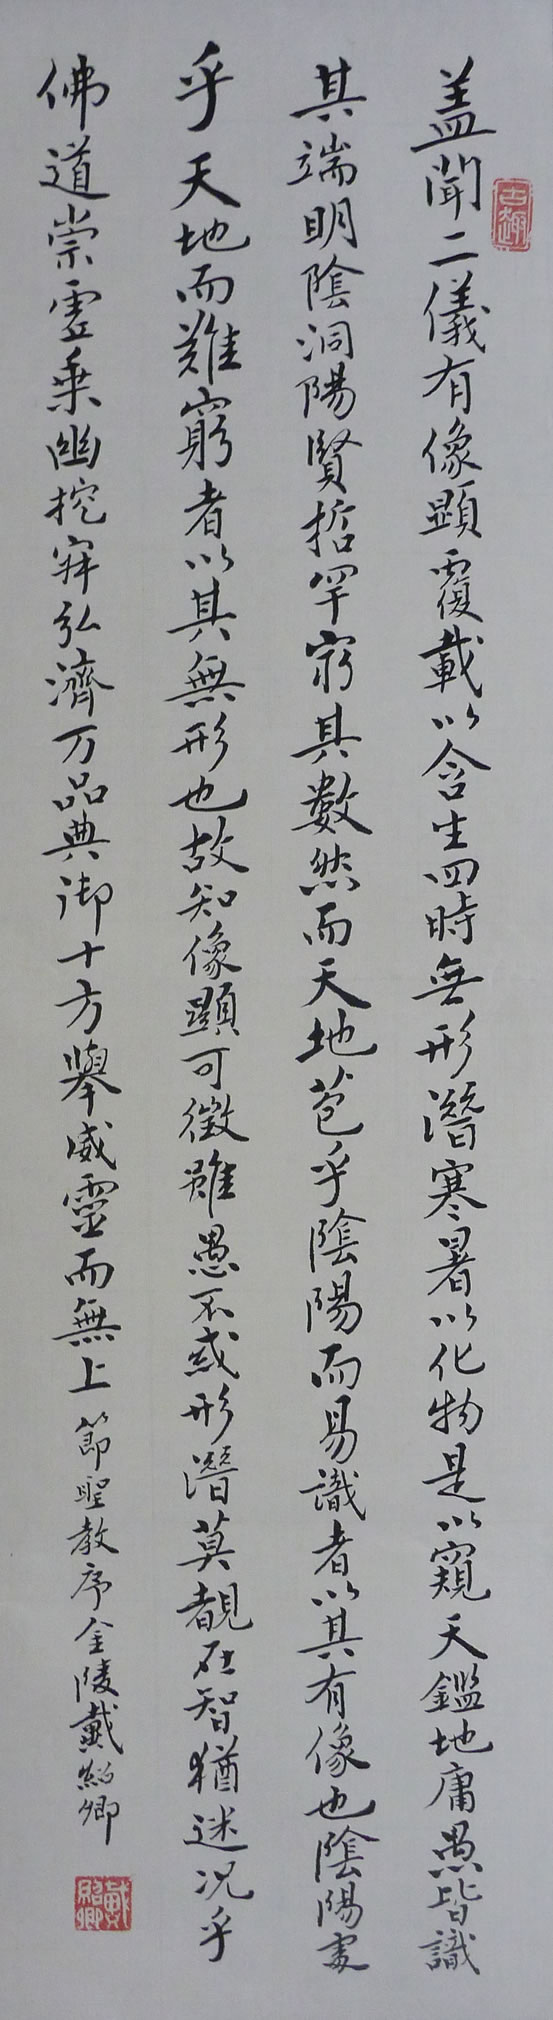 盖聞二儀有像顯覆載以含生四時無形潛寒暑以化物是以窺天鑑地庸愚皆識
其端明陰洞陽賢哲罕窮其數然而天地苞乎陰陽而易識者以其有像也陰陽處
乎天地而難窮者以其無形也故知像顯可徵雖愚不惑形潛莫覩在智猶迷况乎
佛道崇虛乘幽控寂弘濟万品典御十方舉威靈而無上
節聖教序金陵戴紹卿
古趣
戴紹卿